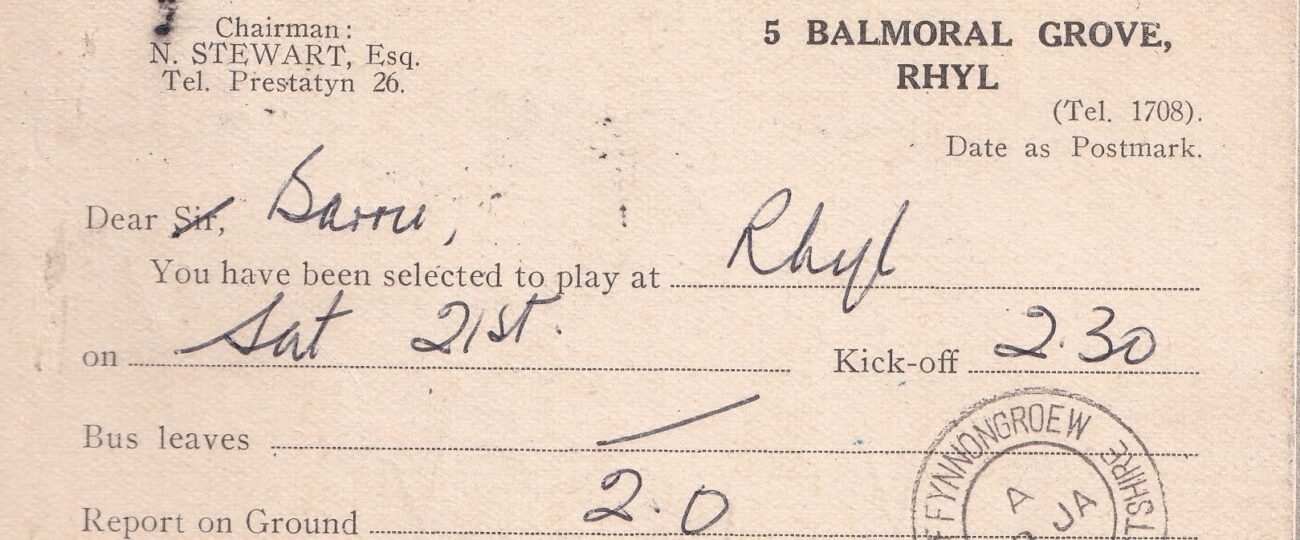 Chairman:
N. STEWART, Esq.
Tel. Prestatyn 26.
5 BALMORAL GROVE,
RHYL
(Tel. 1708).
Date as Postmark.
Dear Sir, Barrie,
You have been selected to play at Rhyl
on Sat 21st. Kick-off 2.30
Bus leaves
Report on Ground 2.0
FFYNNONGROEW
TSHIRE
A JA